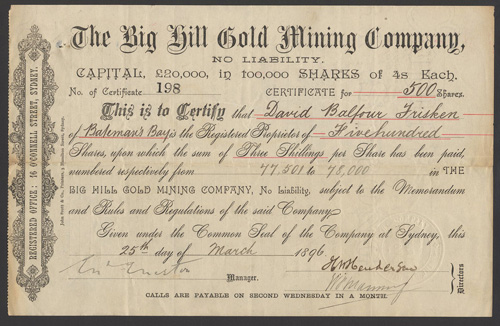 The Big Hill Gold Mining Company,
NO LIABILITY.
CAPITAL, £20,000, in 100,000 SHARES OF 4s Each.
No. of Certificate 198 CERTIFICATE for 500 Shares.
This is to Certify that David Balfour Frisken
of Bateman's Bay is the Registered Proprietor of Five hundred
Shares, upon which the sum of Three Shillings per Share has been paid,
numbered respectively from 77.501 to 78,000 in THE
BIG HILL GOLD MINING COMPANY, No Liability, subject to the Memorandum
and Rules and Regulations of the said Company.
Given under the Common Seal of the Company at Sydney, this
25th day of March 1896
Manager.
Directors
CALLS ARE PAYABLE ON SECOND WEDNESDAY IN A MONTH.
REGISTERED OFFICE: 16 O'CONNELL STREET, SYDNEY.